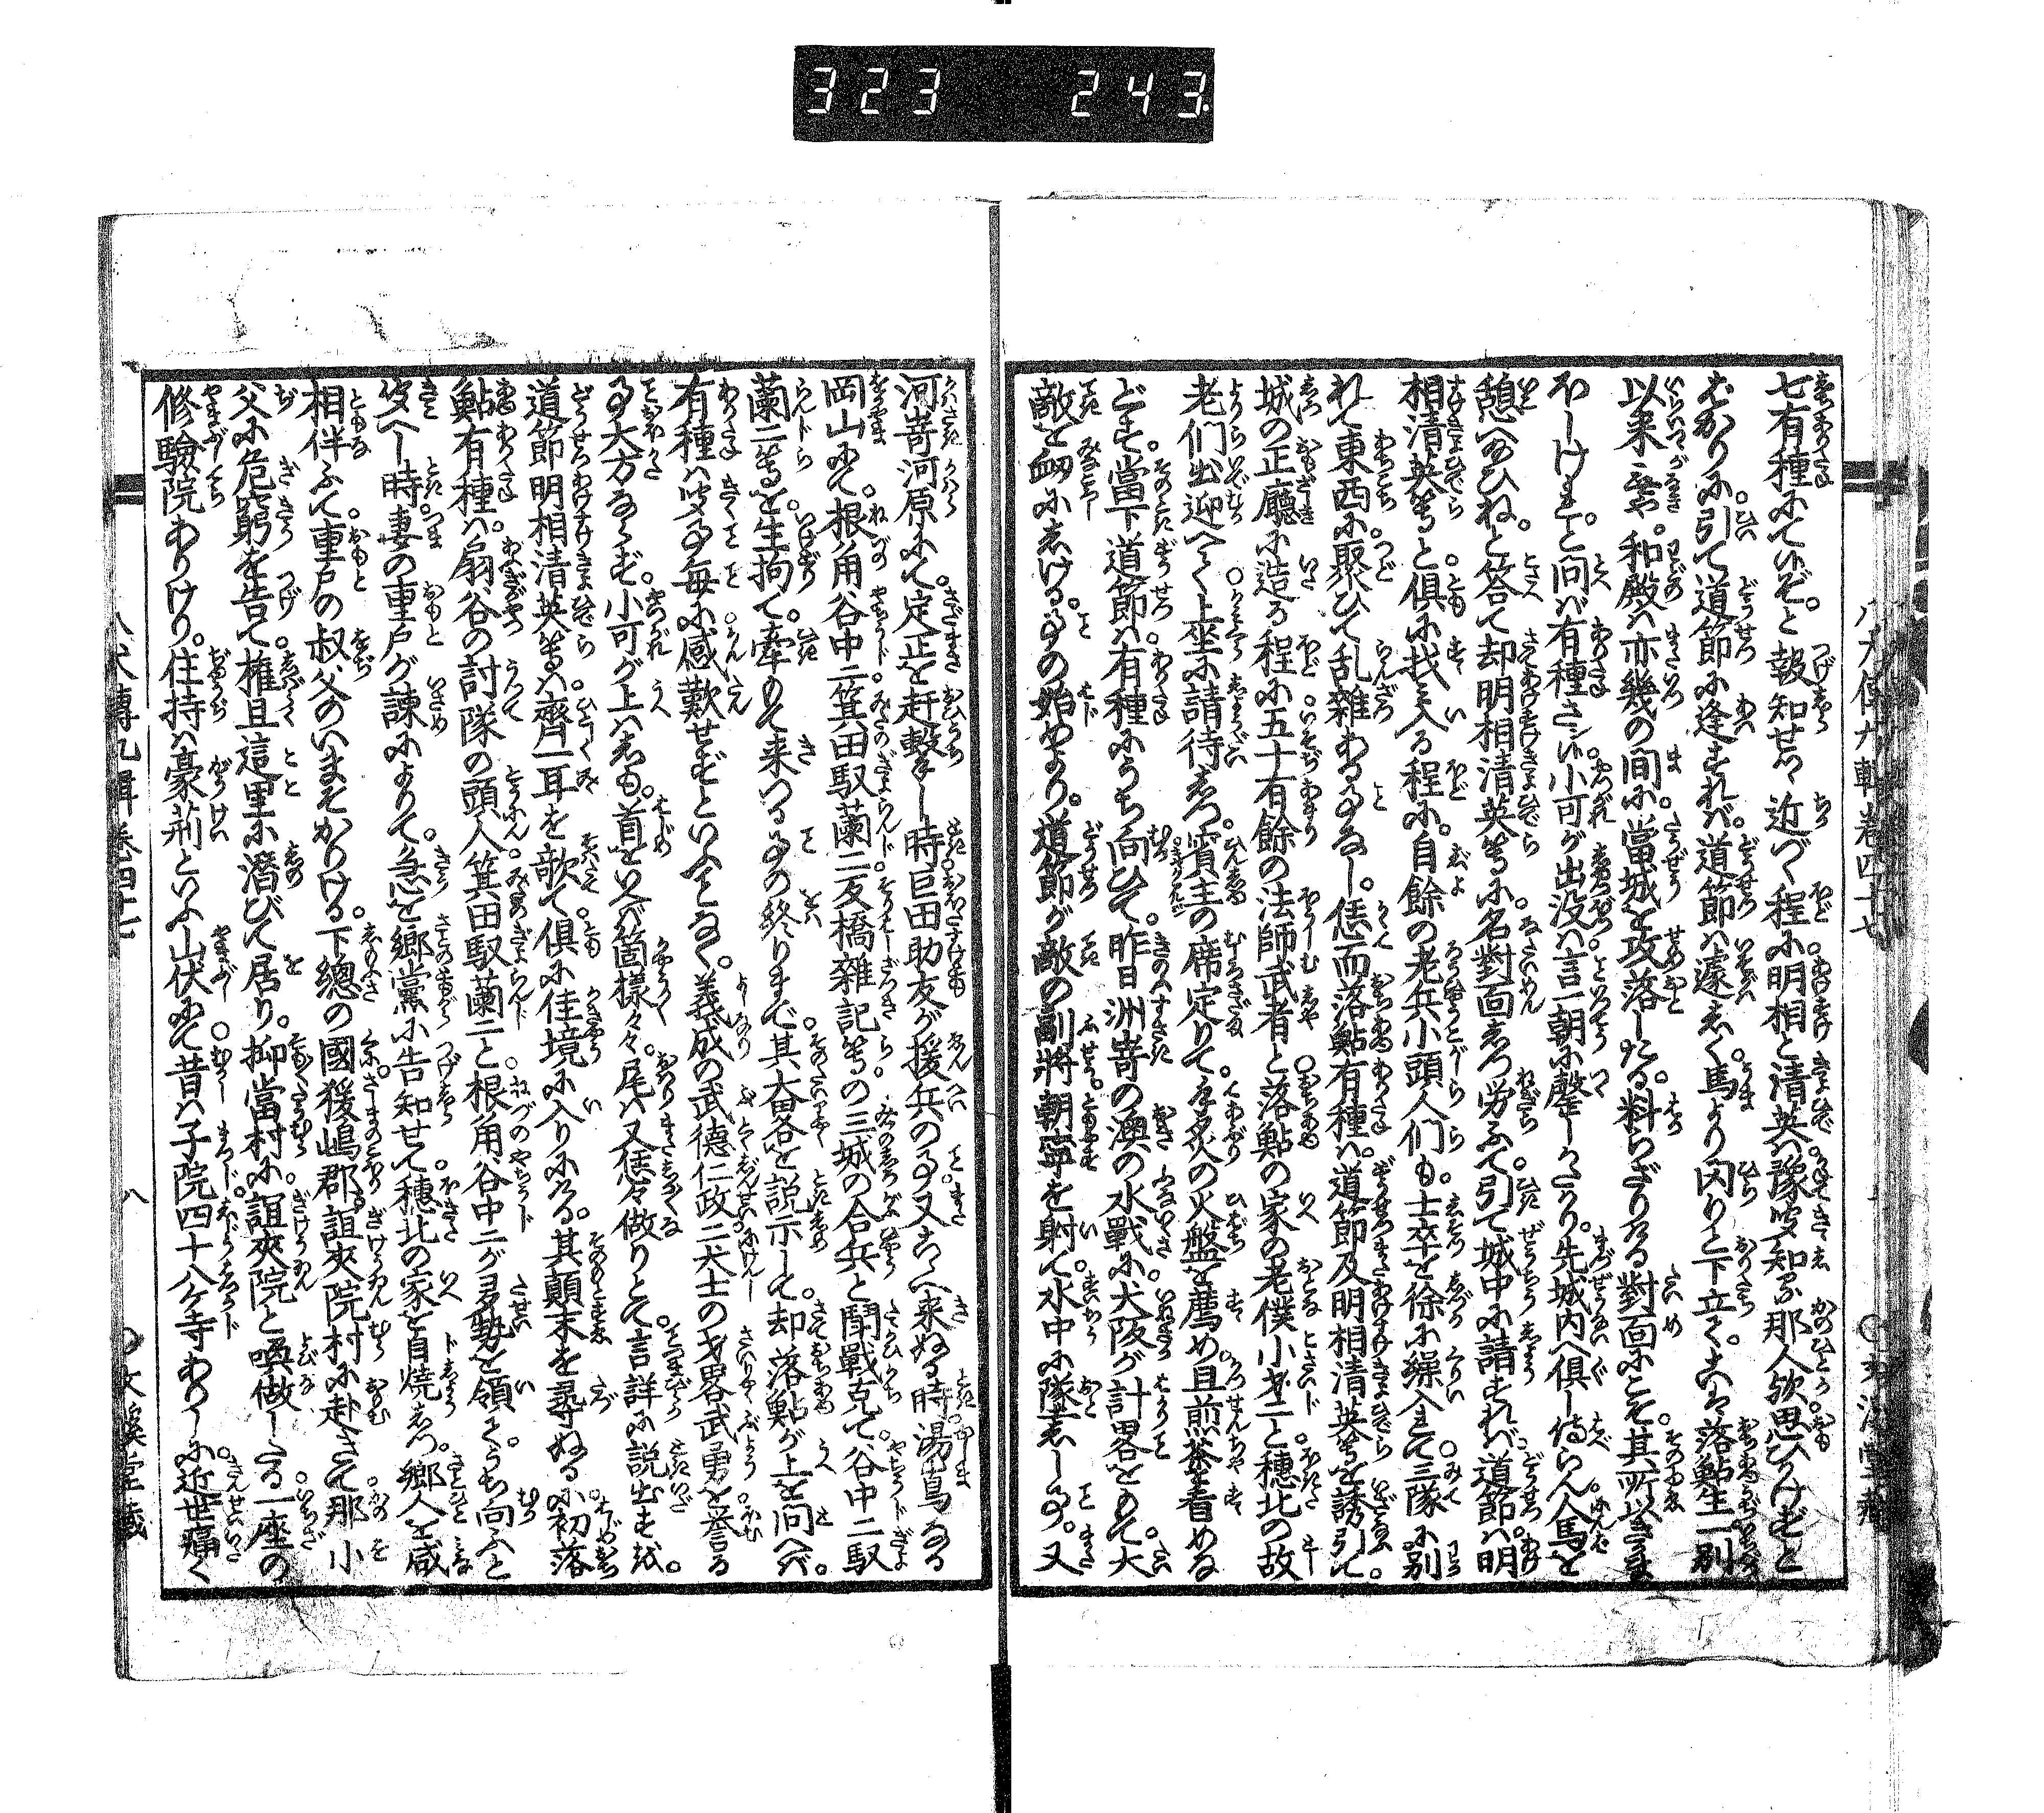 323 243
七有種にて候ぞと報知せつゝ近づく程に明相と清英は豫聞知る那人歟思ひけどと
ばかりに引て道節に逢すれば道節は遽しく馬より閃りと下立てこは落鮎生一別
以来恙なきや和殿は亦幾の間に當城を攻落したる料らざりける對面にこそ其所以きま
ほしけれと問ば有種さン候小可が出没は言一朝に罄しかたかり先城内へ倶し侍らん人馬を
憩へ給ひねと答て却明相清英等に名對面しつ労ふて引て城中に請すれば道節は明
相清英等と倶に找み入る程に自餘の老兵小頭人們も士卒を徐に繰入れて三隊に別
れて東西に聚ひて乱雑あることなし恁而落鮎有種は道節及明相清英等を誘引て
城の正廳に造る程に五十有餘の法師武者と落鮎の家の老僕小才二と穂北の故
老們出迎へて上坐に請待しつ賓主の席定りて手炙の火盤を薦め且煎茶を看めな
どす當下道節は有種にうち向ひて昨日洲嵜の澳の水戰に犬阪が計畧をもて大
敵を衂にしけることの始めより道節が敵の副將朝寧を射て水中に墜しゝ事又
河嵜河原にて定正を赶撃し時巨田助友が援兵の事又こゝへ来ぬる時湯嶌なる
岡山にて根角谷中二箕田馭蘭二反橋雜記等の三城の合兵と鬪戰克て谷中二馭
蘭二等を生拘て牽もて来つる事の終りまで其大畧を説示して却落鮎が上を問へば
有種は聞く事毎に感歎せずといふことなく義成の武德仁政二犬士の才畧武勇を誉る
こと大方ならず小可が上はしも首をいへば箇様々々尾は又恁々做りとて言詳に説出すを
道節明相清英等は齊一耳を敧て倶に佳境に入りにける其顛末を尋ぬるに初落
鮎有種は扇谷の討隊の頭人箕田馭蘭二と根角谷中二が多勢を領てうち向ふと
聞へし時妻の重戸が諫によりて急を鄉黨に告知せて穂北の家を自焼しつ鄉人を咸
相伴ふて重戸の叔父のいまそかりける下總の國猨嶋郡誼夾院村に赴きて那小
父に危窮を告て權且這里に潜びて居り抑當村に誼夾院と喚做したる一座の
修驗院ありけり住持は豪荊といふ山伏にて昔は子院四十八ケ寺ありしに近世痛く
八犬傳九輯卷四十七
八